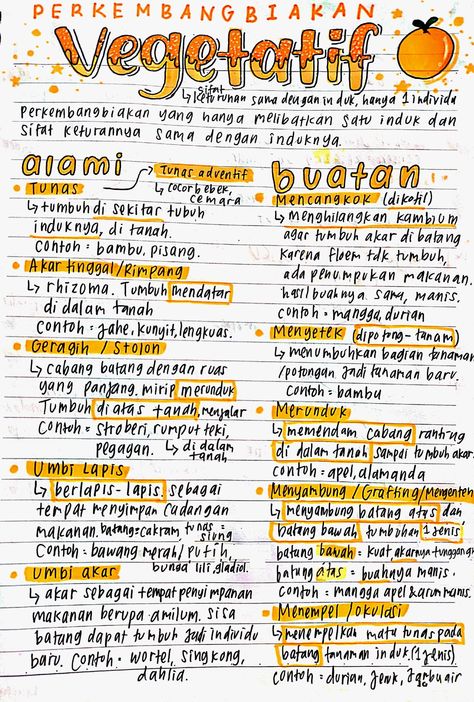 PERKEMBANGBIAKAN
Vegetatif
sifat
↳ keturunan sama dengan induk, hanya 1 individu
Perkembangbiakan yang hanya melibatkan satu induk dan
sifat keturannya sama dengan induknya.
alami
Tunas adventif
↳ cocor bebek,
cemara
• Tunas
↳ tumbuh di sekitar tubuh
induknya, di tanah.
contoh = bambu, pisang.
• Akar tinggal/Rimpang
↳ rhizoma. Tumbuh mendatar
di dalam tanah
Contoh = jahe, kunyit, lengkuas.
• Geragih / Stolon
↳ cabang batang dengan ruas
yang panjang. mirip merunduk
Tumbuh di atas tanah, menjalar
Contoh = stroberi, rumput teki,
pegagan. ↳ di dalam
tanah
• Umbi Lapis
↳ berlapis-lapis. sebagai
tempat menyimpan cadangan
makanan. batang = cakram, tunas =
siung
Contoh = bawang merah/putih,
bunga lili, gladiol.
• Umbi akar
↳ akar sebagai tempat penyimpanan
makanan berupa amilum. sisa
batang dapat tumbuh jadi individu
baru. Contoh = wortel, singkong,
dahlia.
buatan
• Mencangkok (dikotil)
↳ Menghilangkan kambium
agar tumbuh akar di batang
karena floem tdk tumbuh,
ada penumpukan makanan.
hasil buahnya sama, manis.
contoh = mangga, durian
• Menyetek (dipotong-tanam)
↳ menumbuhkan bagian tanaman
/potongan jadi tanaman baru.
Contoh = bambu
• Merunduk
↳ memendam cabang ranting
di dalam tanah sampai tumbuh akar.
contoh = apel, alamanda
• Menyambung / Grafting/mengenten
↳ menyambung batang atas dan
batang bawah tumbuhan 1 jenis
batang bawah = kuat, akarnya tunggang
batang atas = buahnya manis.
Contoh = mangga apel & arum manis.
• Menempel /okulasi
↳ menempelkan mata tunas pada
batang tanaman induk. (1 jenis)
contoh = durian, jeruk, jambu air